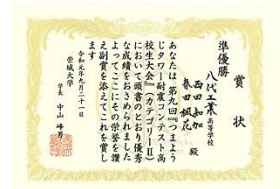 賞状
準優勝
八代工業高等学校
西田
春田楓花
殿
あなたは第九回『つまよう
じタワー耐震コンテスト高
校生大会』(カテゴリーII)
において頭書のとおり優秀
な成績をおさめられました
よってここにその栄誉を讃
え副賞を添えてこれを賞し
ます
令和元年九月二十一日
崇城大学
学長 中山峰男